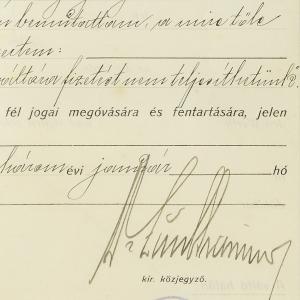 bemutattam, a mire tőle
váltóra fizetést nem teljesíthetünk".
fél jogai megóvására és fentartására, jelen
három évi január hó
kir. közjegyző.